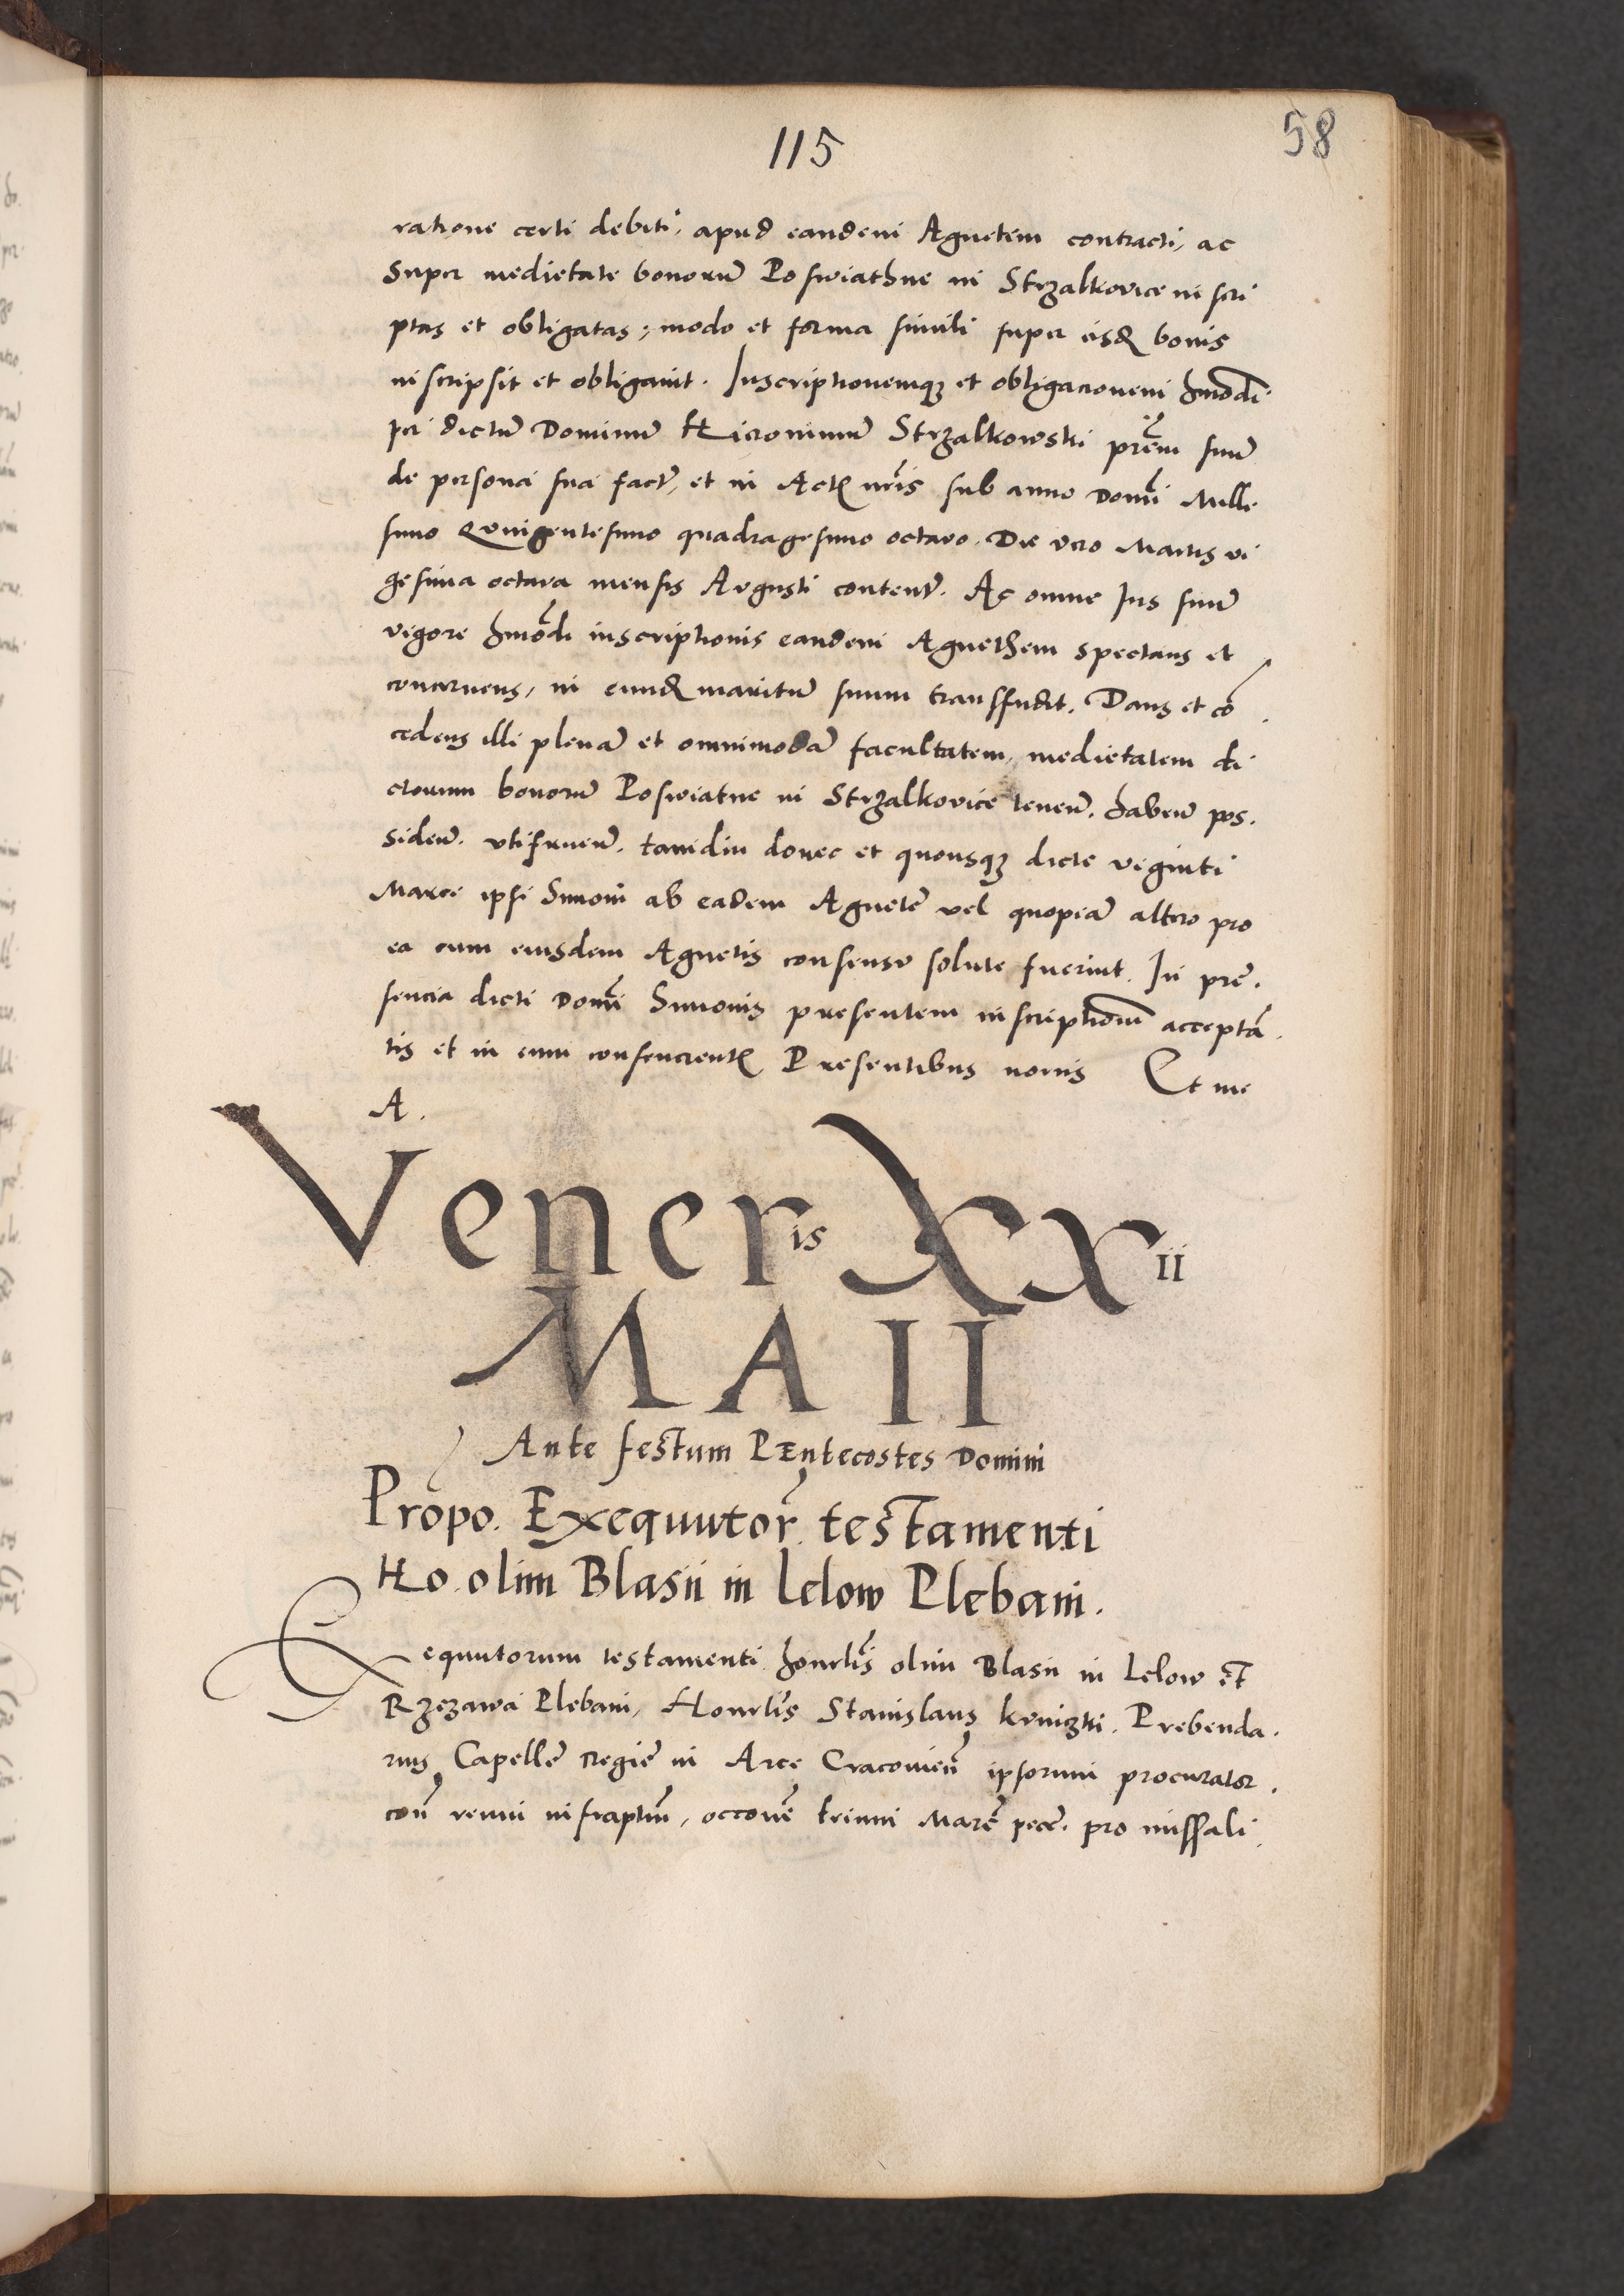 115
58
ratione certi debiti, apud eandem Agnetem contracti, ac
super medietate bonorū Poswiathne in Strzalkovice in scri
ptas et obligatas, modo et forma simili super eisd bonis
inscripsit et obligauit. Inscriptionemq; et obligacionem hmōdi
per dictū Dominū Hieronimū Strzalkowski prēm suū
de persona sua factā, et in Actis nrīs sub anno Domī Mille
simo Quingentesimo quadragesimo octavo. Die vero Martis vi
gesima octava mensis Avgusti contentā. Ac omne Ius suū
vigore hmōdi inscriptionis eandem Agnethem spectans et
concernens, in eund maritū suum transffudit. Dans et cō
cedens illi plenā et omnimodā facultatem, medietatem di
ctorum bonorū Poswiatne in Strzalkovice tenen̄. haben̄ pos.
siden̄. vtifruen̄. tamdiu donec et quousq; dicte viginti
Marce ipsi Simoni ab eadem Agnete vel quopiā altero pro
ea cum eiusdem Agnetis consensv solute fuerint. In pre.
sencia dicti Domī Simonis presentem inscriptionem acceptā.
tis et in eum consencientis Presentibus nonis Et me
A.
Veneris XXii
MAII
Ante festum PEntecostes Domini
Propo. Exequutor. testamenti
Ho. olim Blasii in Lelow Plebani.
Exequutorum testamenti honrlis olim Blasii in Lelow et
Rzezawa Plebani, Honrlis Stanislaus Krniczki. Prebenda.
rius Capelle Regie in Arce Cracovien̄ ipsorum procurator.
con̄ reum infraptm, occone trium Marc pecc. pro missali